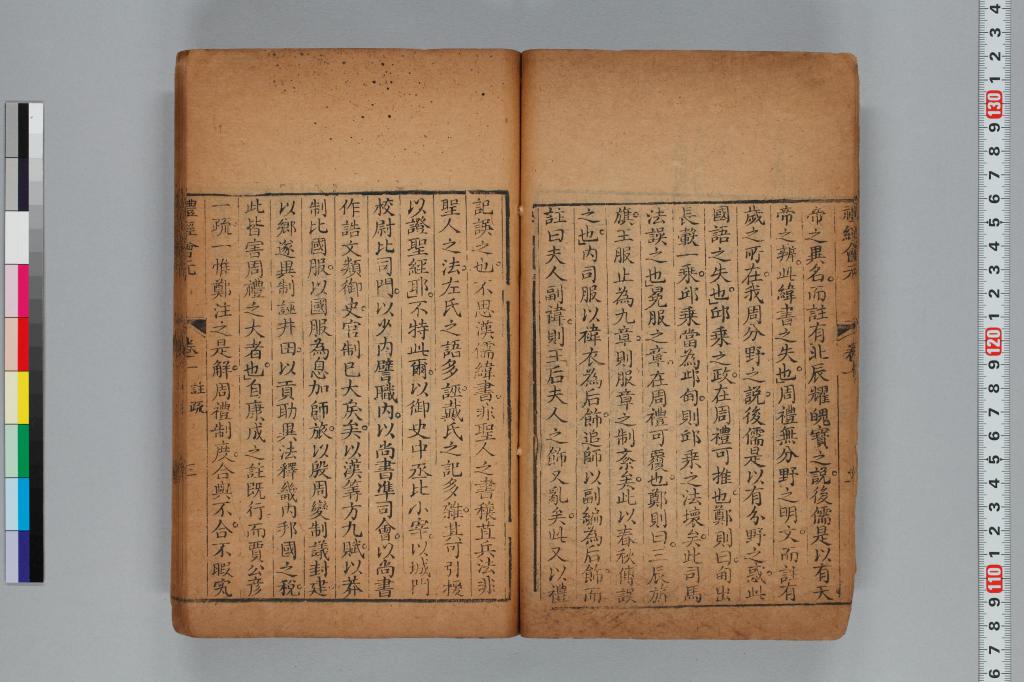 帝之異名而註有北辰耀魄寶之說後儒是以有天
帝之辨此緯書之失也周禮無分野之明文而註有
歲之所在我周分野之說後儒是以有分野之惑此
國語之失也邱乘之政在周禮可推也鄭則曰甸出
長轂一乘邱乘當為邱甸則邱乘之法壞矣此司馬
法誤之也冕服之章在周禮可覆也鄭則曰三辰旂
旗王服止為九章則服章之制紊矣此以春秋傳誤
之也內司服以褘衣為后飾追師以副編為后飾而
註曰夫人副褘則王后夫人之飾又亂矣此又以禮
記誤之也不思漢儒緯書非聖人之書穰苴兵法非
聖人之法左氏之語多誣戴氏之記多雜其可引援
以證聖經耶不特此爾以御史中丞比小宰以城門
校尉比司門以少內譬職內以尚書準司會以尚書
作誥文類御史官制已大戾矣以漢筭方九賦以莽
制比國服以國服為息加師旅以殷周變制議封建
以鄉遂異制誣井田以貢助異法釋畿內邦國之稅
此皆害周禮之大者也自康成之註既行而賈公彥
一疏一惟鄭注之是解周禮制度合與不合不暇究
禮經會元
卷一
註疏
三